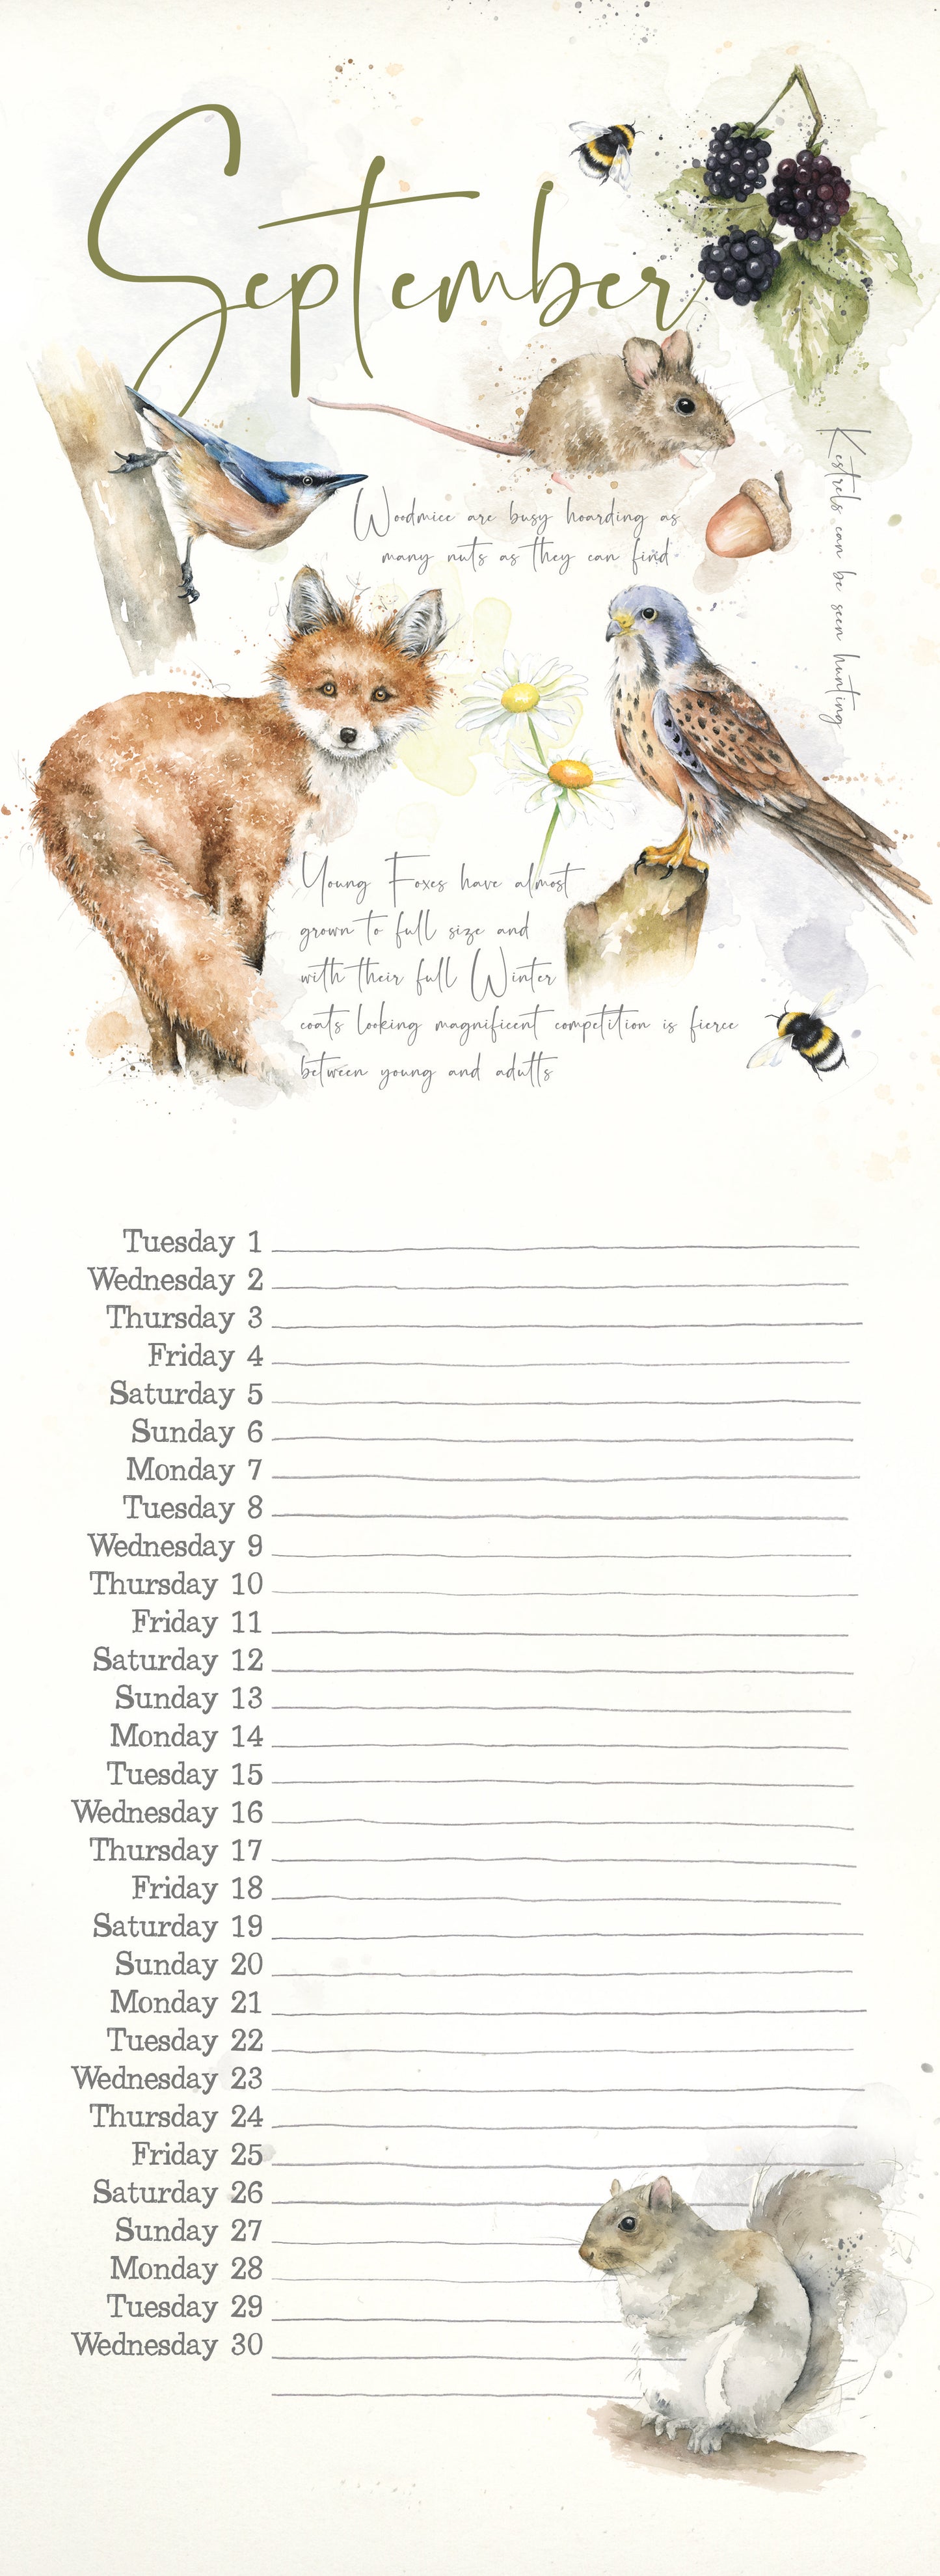 September
Woodmice are busy hoarding as
many nuts as they can find
Kestrels can be seen hunting
Young Foxes have almost
grown to full size and
with their full Winter
coats looking magnificent competition is fierce
between young and adults
Tuesday 1
Wednesday 2
Thursday 3
Friday 4
Saturday 5
Sunday 6
Monday 7
Tuesday 8
Wednesday 9
Thursday 10
Friday 11
Saturday 12
Sunday 13
Monday 14
Tuesday 15
Wednesday 16
Thursday 17
Friday 18
Saturday 19
Sunday 20
Monday 21
Tuesday 22
Wednesday 23
Thursday 24
Friday 25
Saturday 26
Sunday 27
Monday 28
Tuesday 29
Wednesday 30